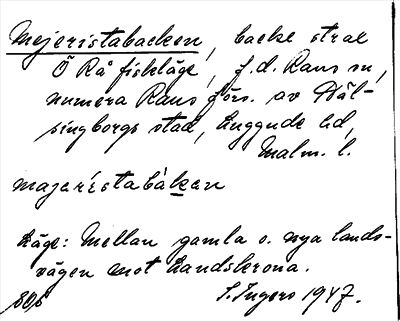 Mejeristabacken, backe strax
Ö Rå fiskläge, f.d. Raus sn,
numera Raus förs. av Häl-
singborgs stad, Luggude hd,
Malm. l.
majarístabàkan
Läge: Mellan gamla o. nya lands-
vägen mot Landskrona.
S. Ingers 1947.